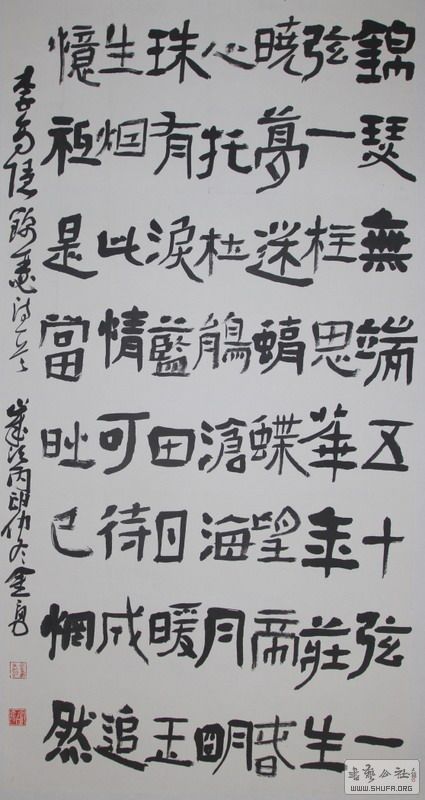 錦瑟無端五十弦一
弦一柱思華年莊生
曉夢迷蝴蝶望帝春
心托杜鵑滄海月明
珠有淚藍田日暖玉
生烟此情可待成追
憶祇是當時已惘然
李商隱錦瑟詩一首 歲次丙戌仲冬金
书艺公社
WWW.SHUFA.ORG